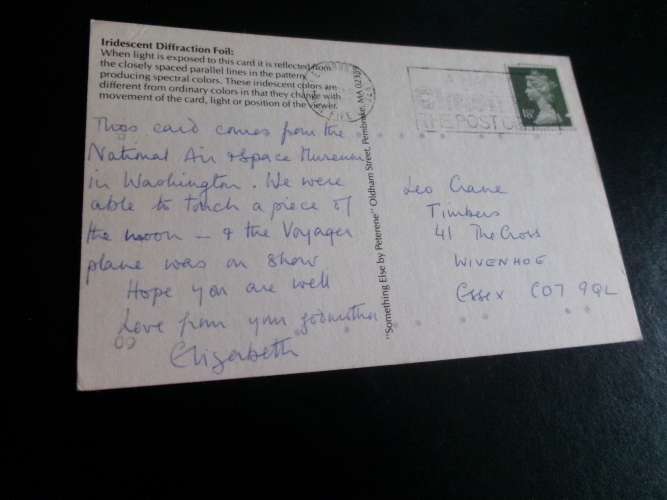 Iridescent Diffraction Foil:
When light is exposed to this card it is reflected from
the closely spaced parallel lines in the pattern,
producing spectral colors. These iridescent colors are
different from ordinary colors in that they change with
movement of the card, light or position of the viewer.
This card comes from the
National Air & Space Museum
in Washington. We were
able to touch a piece of
the moon — & the Voyager
plane was on show
Hope you are well
Love from your godmother
Elizabeth
"Something Else by Peterene" Oldham Street, Pembroke, MA
THE POST
18P
Leo Crane
Timbers
41 The Cross
WIVENHOE
Essex CO7 9QL